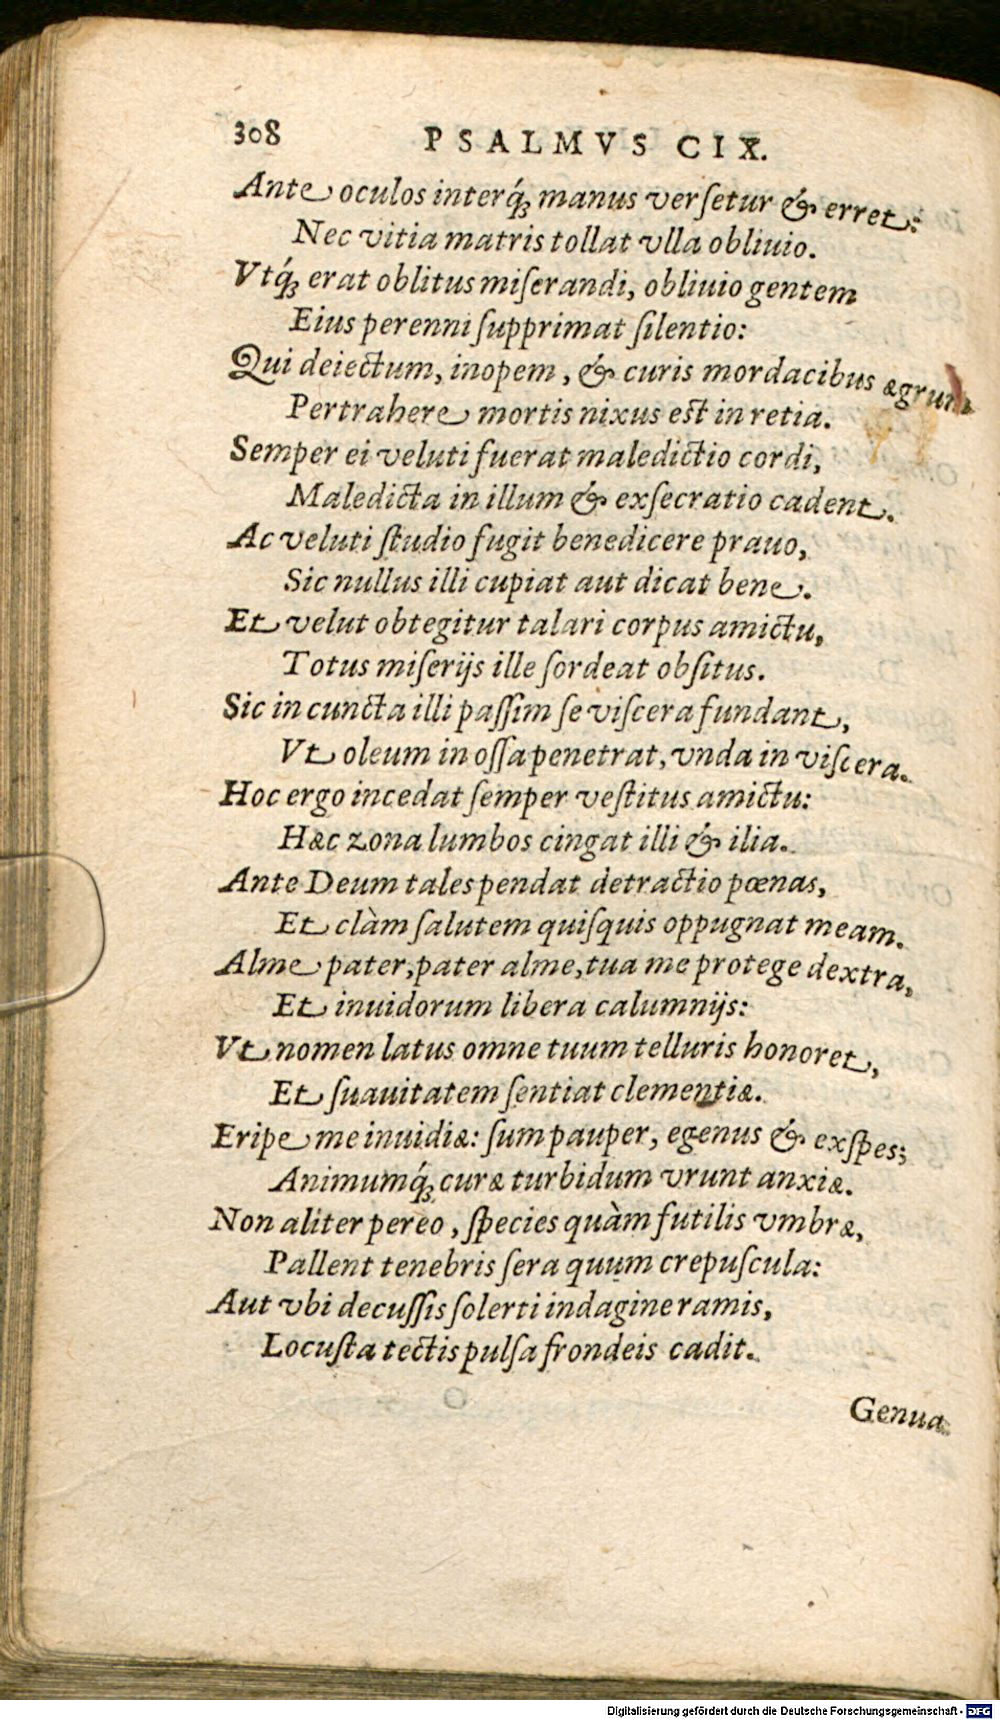 308 PSALMVS CIX.
Ante oculos interq́ꝫ manus verſetur & erret:
Nec vitia matris tollat vlla obliuio.
Vtq́ꝫ erat oblitus miſerandi, obliuio gentem
Eius perenni ſupprimat ſilentio:
Qui deiectum, inopem, & curis mordacibus ægrum
Pertrahere mortis nixus est in retia.
Semper ei veluti fuerat maledictio cordi,
Maledicta in illum & exſecratio cadent.
Ac veluti ſtudio fugit benedicere prauo,
Sic nullus illi cupiat aut dicat bene.
Et velut obtegitur talari corpus amictu,
Totus miſerijs ille ſordeat obſitus.
Sic in cuncta illi paſſim ſe viſcera fundant,
Vt oleum in oſſa penetrat, vnda in viſcera.
Hoc ergo incedat ſemper veſtitus amictu:
Hæc zona lumbos cingat illi & ilia.
Ante Deum tales pendat detractio pœnas,
Et clàm ſalutem quiſquis oppugnat meam.
Alme pater, pater alme, tua me protege dextra,
Et inuidorum libera calumnijs:
Vt nomen latus omne tuum telluris honoret,
Et ſuauitatem ſentiat clementiæ.
Eripe me inuidiæ: ſum pauper, egenus & exſpes;
Animumq́ꝫ curæ turbidum vrunt anxiæ.
Non aliter pereo, ſpecies quàm futilis vmbræ,
Pallent tenebris ſera quum crepuſcula:
Aut vbi decuſſis ſolerti indagine ramis,
Locuſta tectis pulſa frondeis cadit.
Genua
Digitalisierung gefördert durch die Deutsche Forschungsgemeinschaft - DFG